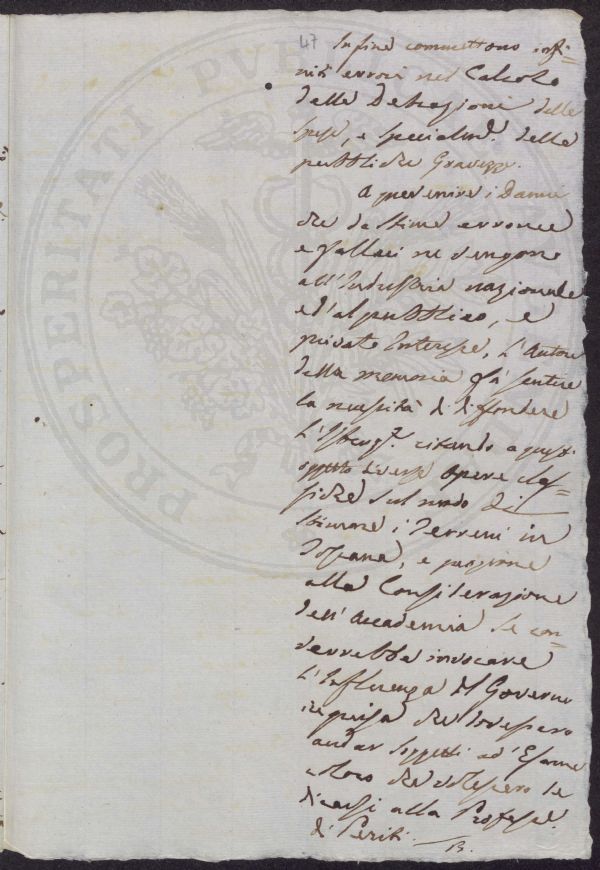 47
Infine commettono infi=
niti errori nel Calcolo
delle Detrazioni delle
spese, e specialm.e delle
pubbliche Gravezze.
A prevenire i Danni
che da stime erronee
e fallaci ne vengono
all'Industria nazionale
ed al pubblico, e
privato Interesse, l'Autore
della memoria fà sentire
la necessità di diffondere
l'Istruz.e citando a questo
oggetto diverse opere clas=
siche sul modo di
stimare i Terreni in
Toscana, e propone
alla Considerazione
dell'Accademia se con=
verrebbe invocare
l'Influenza del Governo
in guisa che dovessero
andar soggetti ad Esame
coloro che volessero de
dicarsi alla Profess.e
di Periti.
PROSPERITATI PVBLICAE